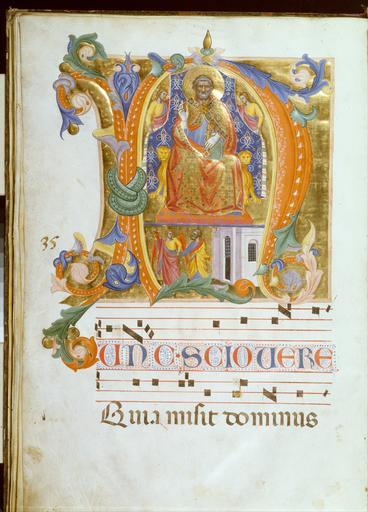 35
N
UNC · SCIO VERE
Quia misit dominus